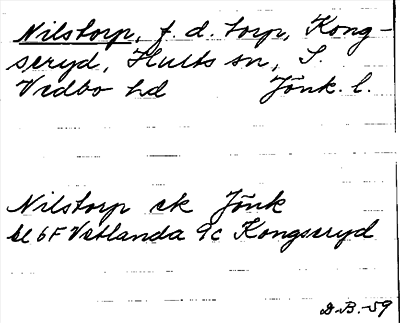 Nilstorp, f. d. torp, Kong-
seryd, Hults sn, S.
Vedbo hd Jönk. l.
Nilstorp ek Jönk
bl 6F Vetlanda 9c Kongseryd
D.B.-59